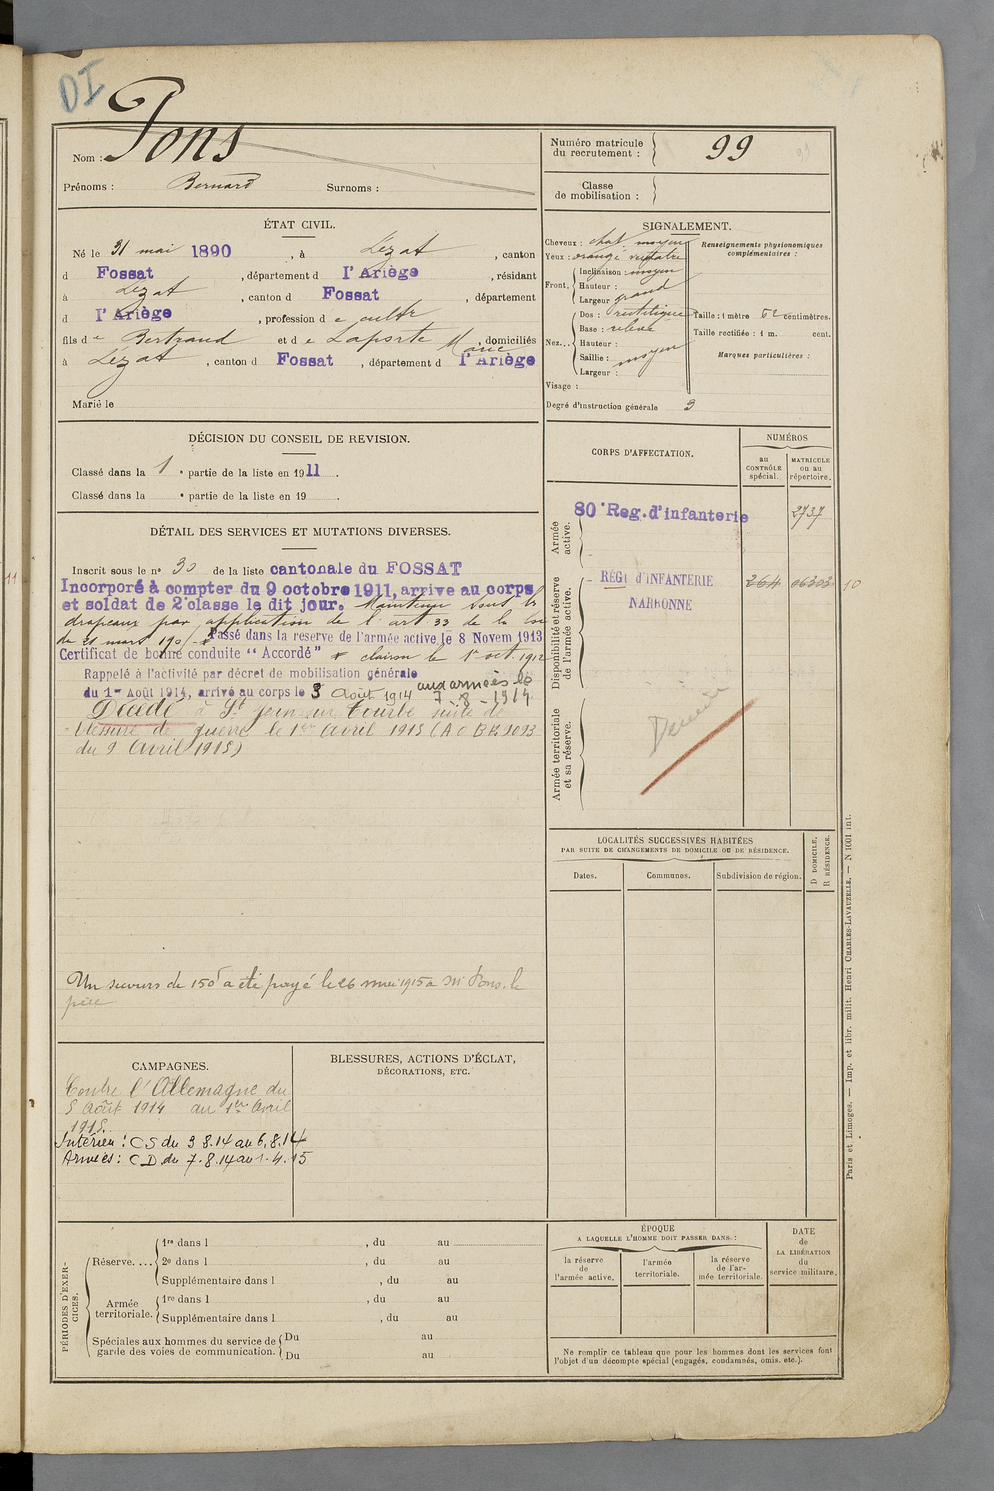 DI
Nom : Pons
Prénoms : Bernard Surnoms :
Numéro matricule du recrutement : 99
Classe de mobilisation :
ÉTAT CIVIL.
Né le 31 mai 1890, à Lézat, canton
d Fossat, département d l'Ariège, résidant
à Lézat, canton d Fossat, département
d l'Ariège, profession d e cultr
fils d e Bertrand et d e Laporte Marie, domiciliés
à Lézat, canton d Fossat, département d l'Ariège
Marié le
SIGNALEMENT.
Cheveux : chat moyen
Yeux : orangé verdâtre
Front, Inclinaison : moyen
Hauteur :
Largeur grand
Nez... Dos : rectiligne
Base : relevé
Hauteur :
Saillie : moyen
Largeur :
Visage :
Degré d'instruction générale 3
Renseignements physionomiques complémentaires :
Taille : 1 mètre 62 centimètres.
Taille rectifiée : 1 m. cent.
Marques particulières :
DÉCISION DU CONSEIL DE REVISION.
Classé dans la 1e partie de la liste en 1911.
Classé dans la e partie de la liste en 19 .
DÉTAIL DES SERVICES ET MUTATIONS DIVERSES.
Inscrit sous le n° 30 de la liste cantonale du FOSSAT
Incorporé à compter du 9 octobre 1911, arrive au corps
et soldat de 2e classe le dit jour. Maintenu sous les
drapeaux par application de l'art 33 de la loi
du 21 mars 190 Passé dans la reserve de l'armée active, le 8 Novem 1913
Certificat de bonne conduite "Accordé" * clairon le 1er oct. 1912
Rappelé à l'activité par décret de mobilisation générale
du 1er Août 1914, arrivé au corps le 3 Août 1914 aux armées le 7-8-1914
Décédé à St jean sur Tourbe suite de
blessure de guerre le 1er Avril 1915 (A O BK 3093
du 9 Avril 1915)
Un secours de 150f a été payé le 26 mai 1915 à Mr Pons, le
père
CORPS D'AFFECTATION.
NUMÉROS
au CONTRÔLE spécial.
MATRICULE ou au répertoire.
Armée active.
80e Reg. d'infanterie 2737
Disponibilité et réserve de l'armée active.
RÉGt d'INFANTERIE 264 06303 10
NARBONNE
Armée territoriale et sa réserve.
11
LOCALITÉS SUCCESSIVES HABITÉES
PAR SUITE DE CHANGEMENTS DE DOMICILE OU DE RÉSIDENCE.
Dates.
Communes.
Subdivision de région.
D DOMICILE.
R RÉSIDENCE.
CAMPAGNES.
Contre l'Allemagne du
3 Août 1914 au 1er Avril
1915.
Intérieur : CS du 3.8.14 au 6.8.14
Armées : CD du 7.8.14 au 1.4.15
BLESSURES, ACTIONS D'ÉCLAT,
DÉCORATIONS, ETC.
PÉRIODES D'EXERCICES.
Réserve.... 1re dans l , du au
2e dans l , du au
Supplémentaire dans l , du au
Armée territoriale. 1re dans l , du au
Supplémentaire dans l , du au
Spéciales aux hommes du service de garde des voies de communication. Du au
Du au
ÉPOQUE
A LAQUELLE L'HOMME DOIT PASSER DANS :
la réserve de l'armée active.
l'armée territoriale.
la réserve de l'armée territoriale.
DATE de LA LIBÉRATION du service militaire.
Ne remplir ce tableau que pour les hommes dont les services font
l'objet d'un décompte spécial (engagés, condamnés, omis, etc.).
Paris et Limoges. — Imp. et libr. milit. Henri CHARLES-LAVAUZELLE. — N 1001 int.